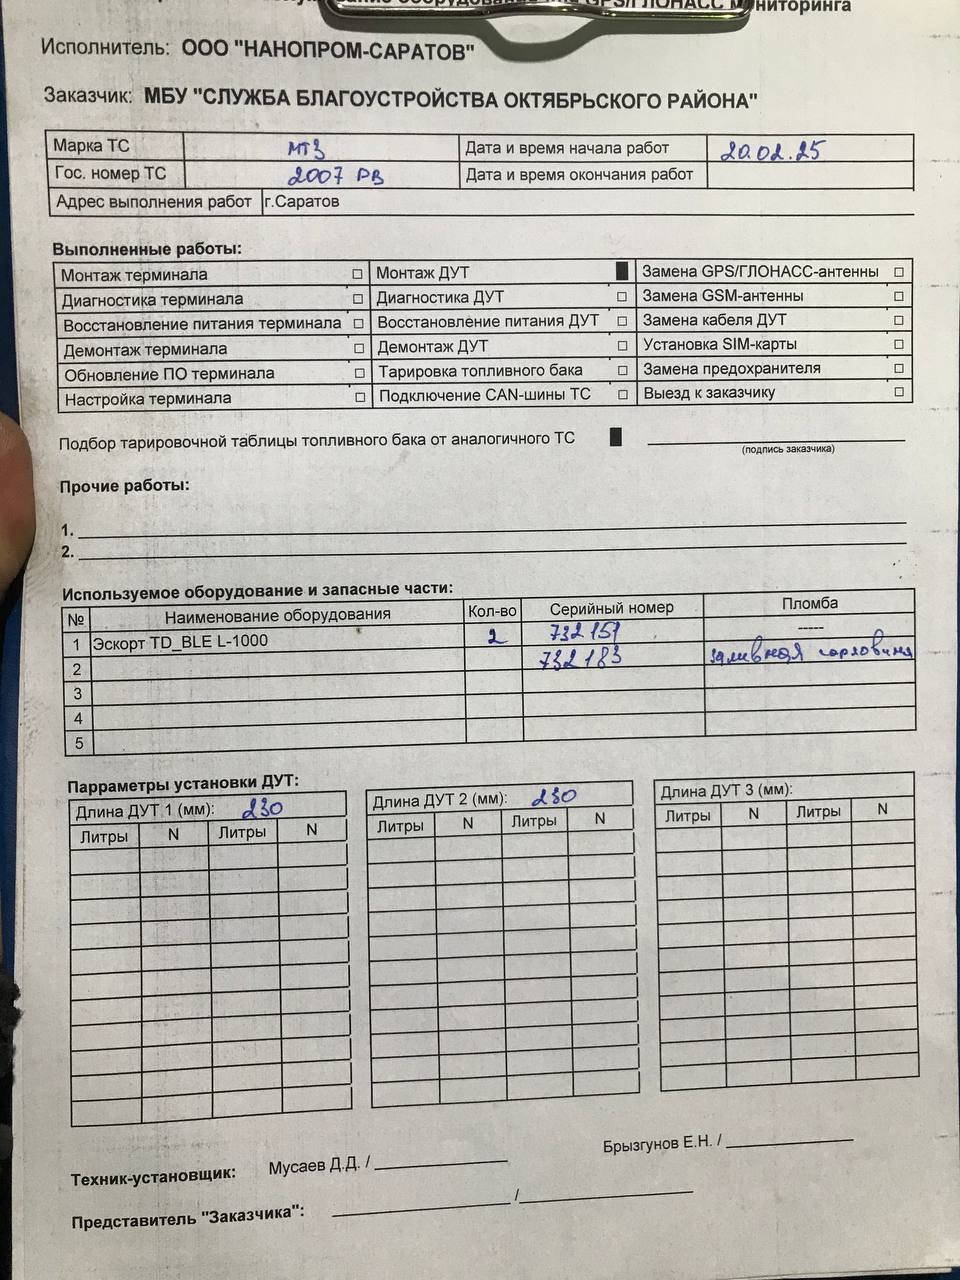 GPS/ГЛОНАСС мониторинга
Исполнитель: ООО "НАНОПРОМ-САРАТОВ"
Заказчик: МБУ "СЛУЖБА БЛАГОУСТРОЙСТВА ОКТЯБРЬСКОГО РАЙОНА"
Марка ТС МТЗ Дата и время начала работ 20.02.25
Гос. номер ТС 2007 РВ Дата и время окончания работ
Адрес выполнения работ г.Саратов
Выполненные работы:
Монтаж терминала □ Монтаж ДУТ ■ Замена GPS/ГЛОНАСС-антенны □
Диагностика терминала □ Диагностика ДУТ □ Замена GSM-антенны □
Восстановление питания терминала □ Восстановление питания ДУТ □ Замена кабеля ДУТ □
Демонтаж терминала □ Демонтаж ДУТ □ Установка SIM-карты □
Обновление ПО терминала □ Тарировка топливного бака □ Замена предохранителя □
Настройка терминала □ Подключение CAN-шины ТС □ Выезд к заказчику □
Подбор тарировочной таблицы топливного бака от аналогичного ТС ■
(подпись заказчика)
Прочие работы:
1.
2.
Используемое оборудование и запасные части:
№ Наименование оборудования Кол-во Серийный номер Пломба
1 Эскорт TD_BLE L-1000 2 732151 -----
2 732183 заливная горловина
3
4
5
Парраметры установки ДУТ:
Длина ДУТ 1 (мм): 230 Длина ДУТ 2 (мм): 230 Длина ДУТ 3 (мм):
Литры N Литры N Литры N Литры N Литры N Литры N
Техник-установщик: Мусаев Д.Д. / Брызгунов Е.Н. /
Представитель "Заказчика": /